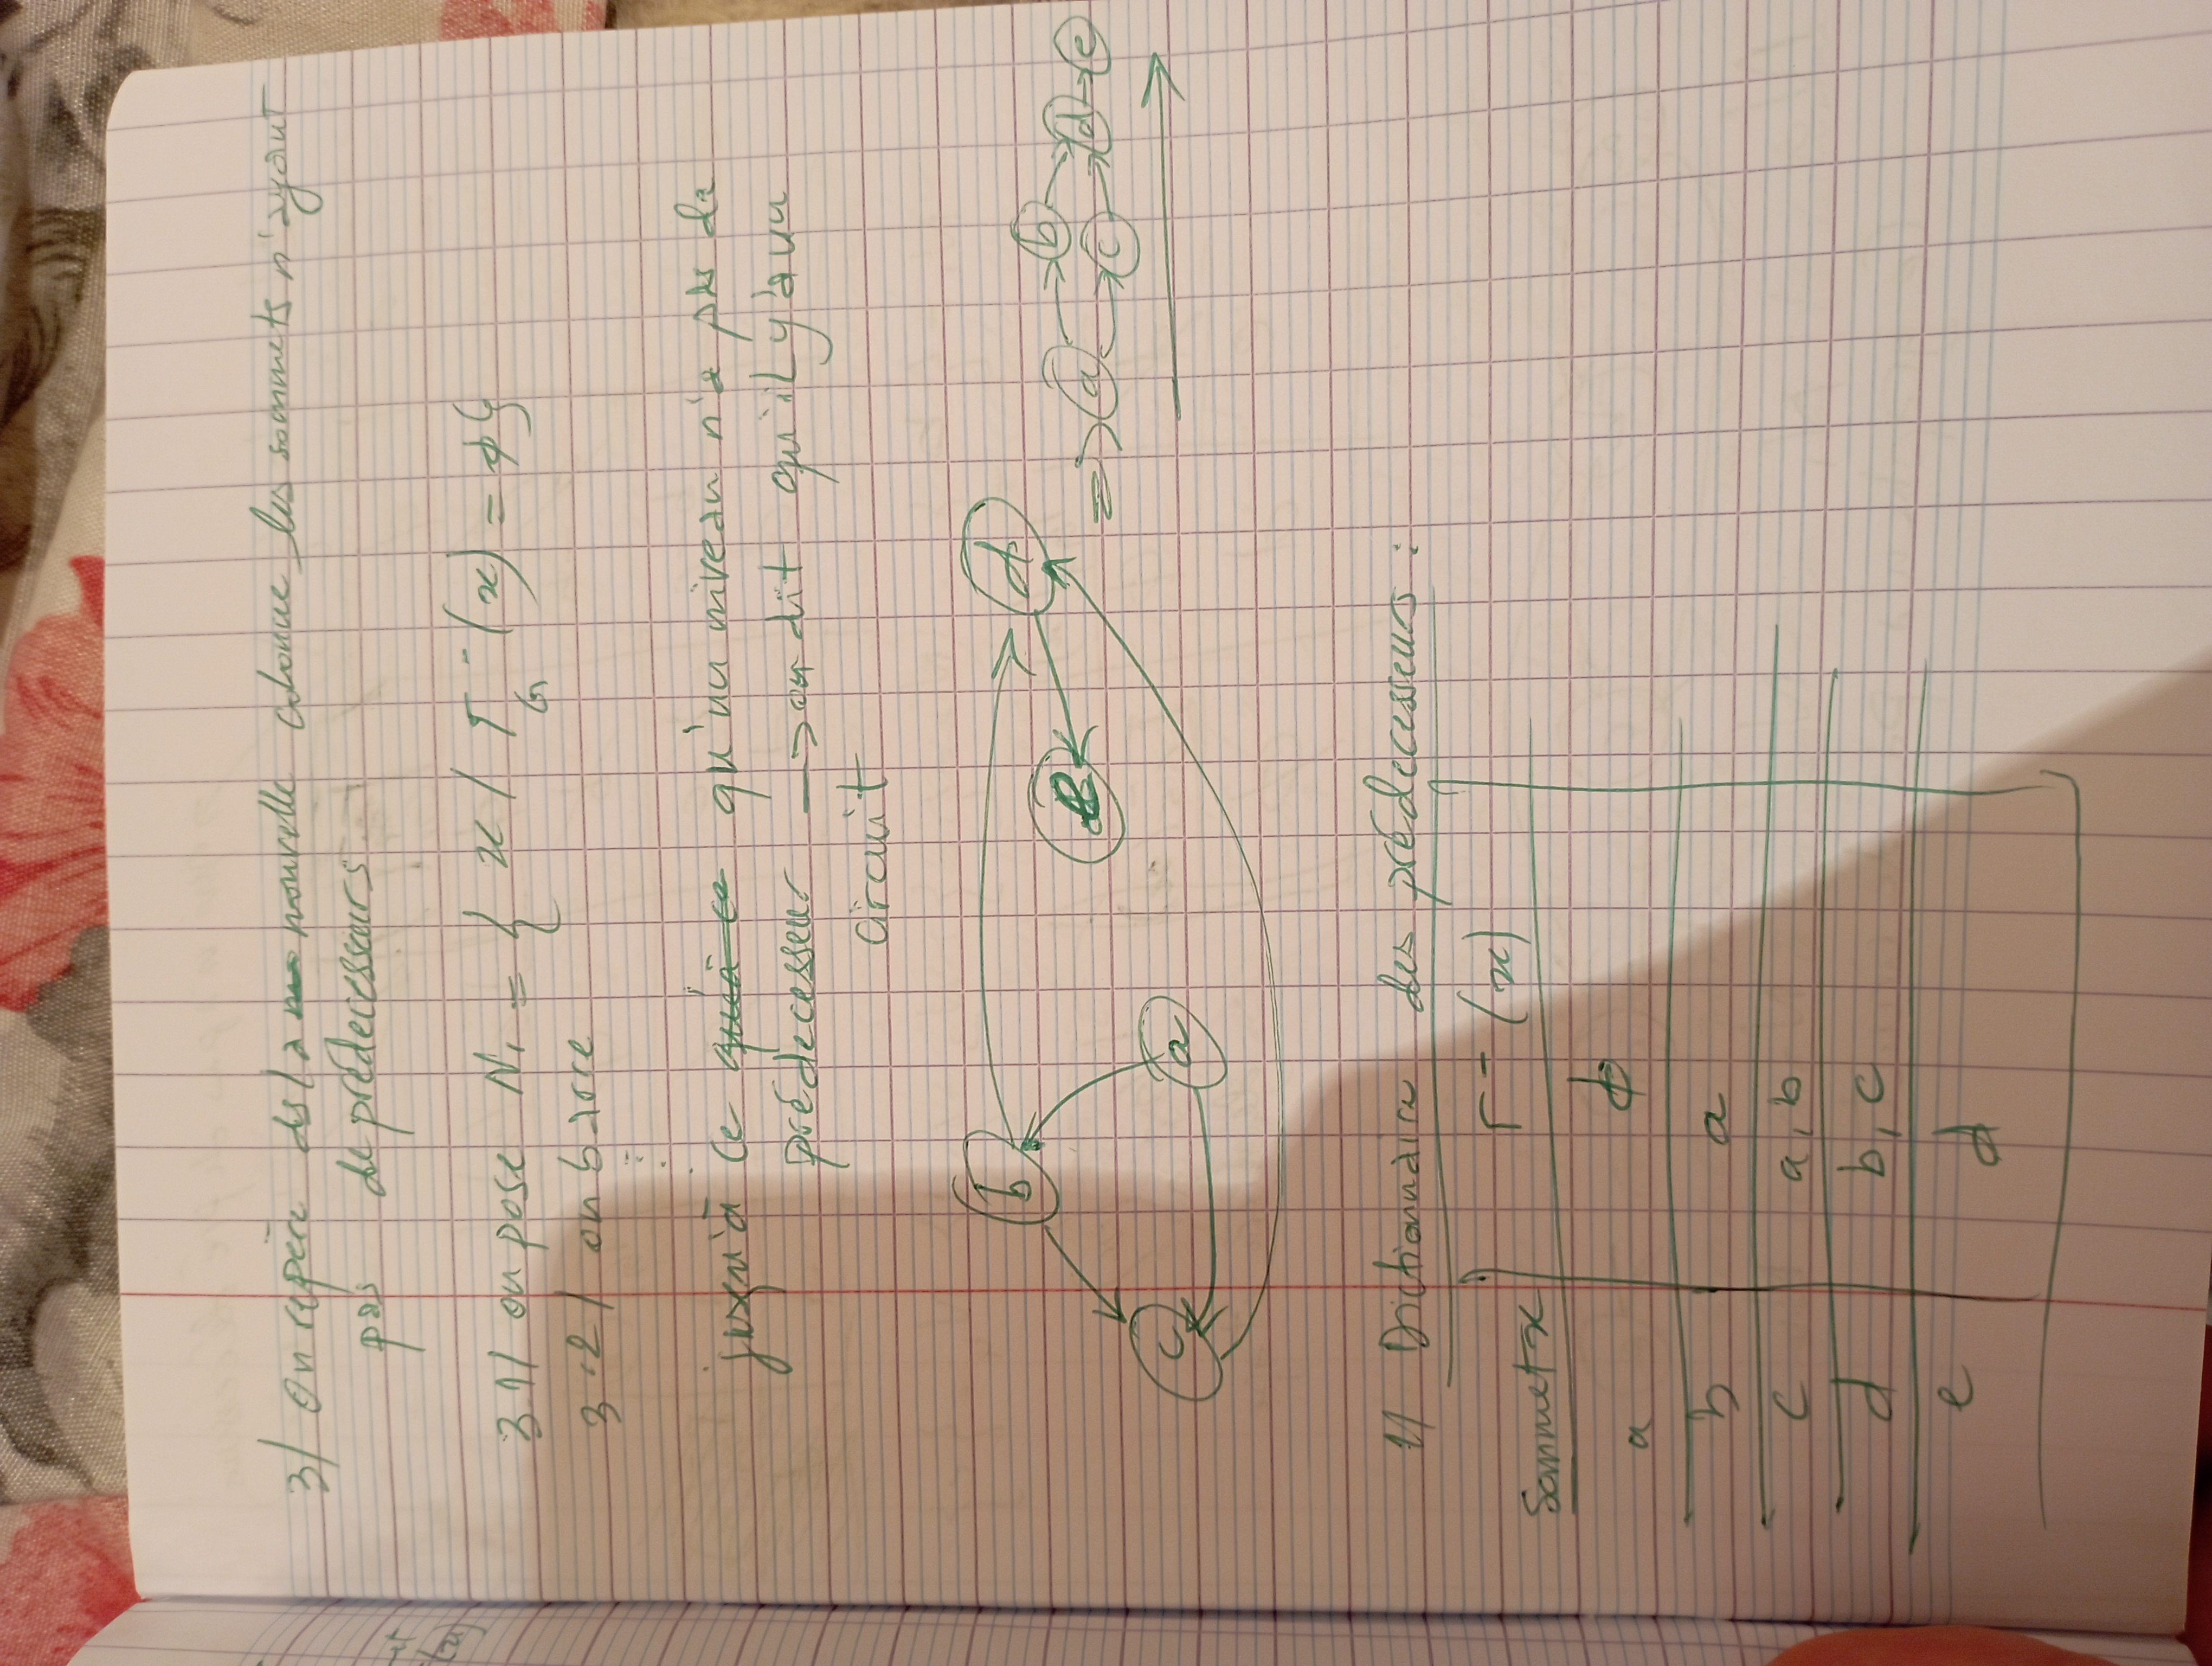 3/ On repère ds la nouvelle colonne les sommets n'ayant
pas de prédecesseurs
3.1/ on pose N1 = { x / Γ-G (x) = ϕ}
3.2/ on barre
jusqu'à ce qu'un niveau n'a pas de
prédecesseur → on dit qu'il y a un
circuit
b d
c a e ⇒ a b c d e
1/ Dictionnaire des prédecesseurs :
Sommet x Γ- (x)
a ϕ
b a
c a, b
d b, c
e d